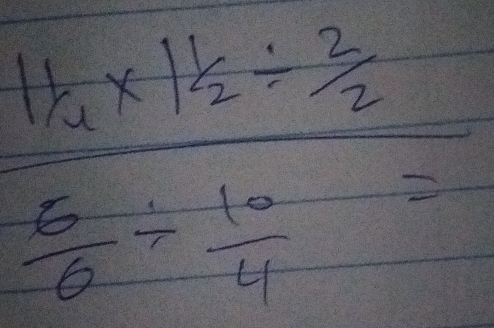 1 1/4 × 1 1/2 ÷ 2/2
6/6 ÷ 10/4 =